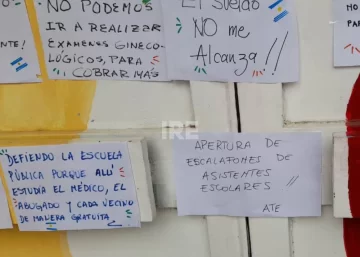 NO PODEMOS
IR A REALIZAR
EXÁMENES GINECO-
LÓGICOS, PARA
COBRAR MÁS
El sueldo
NO me
Alcanza!!
ENTE!
HO
PAR
IRE
DEFIENDO LA ESCUELA
PÚBLICA PORQUE ALLÍ
ESTUDIA EL MÉDICO, EL
ABOGADO Y CADA VECINO
DE MANERA GRATUITA.
APERTURA DE
ESCALAFONES DE
ASISTENTES
ESCOLARES //
ATE